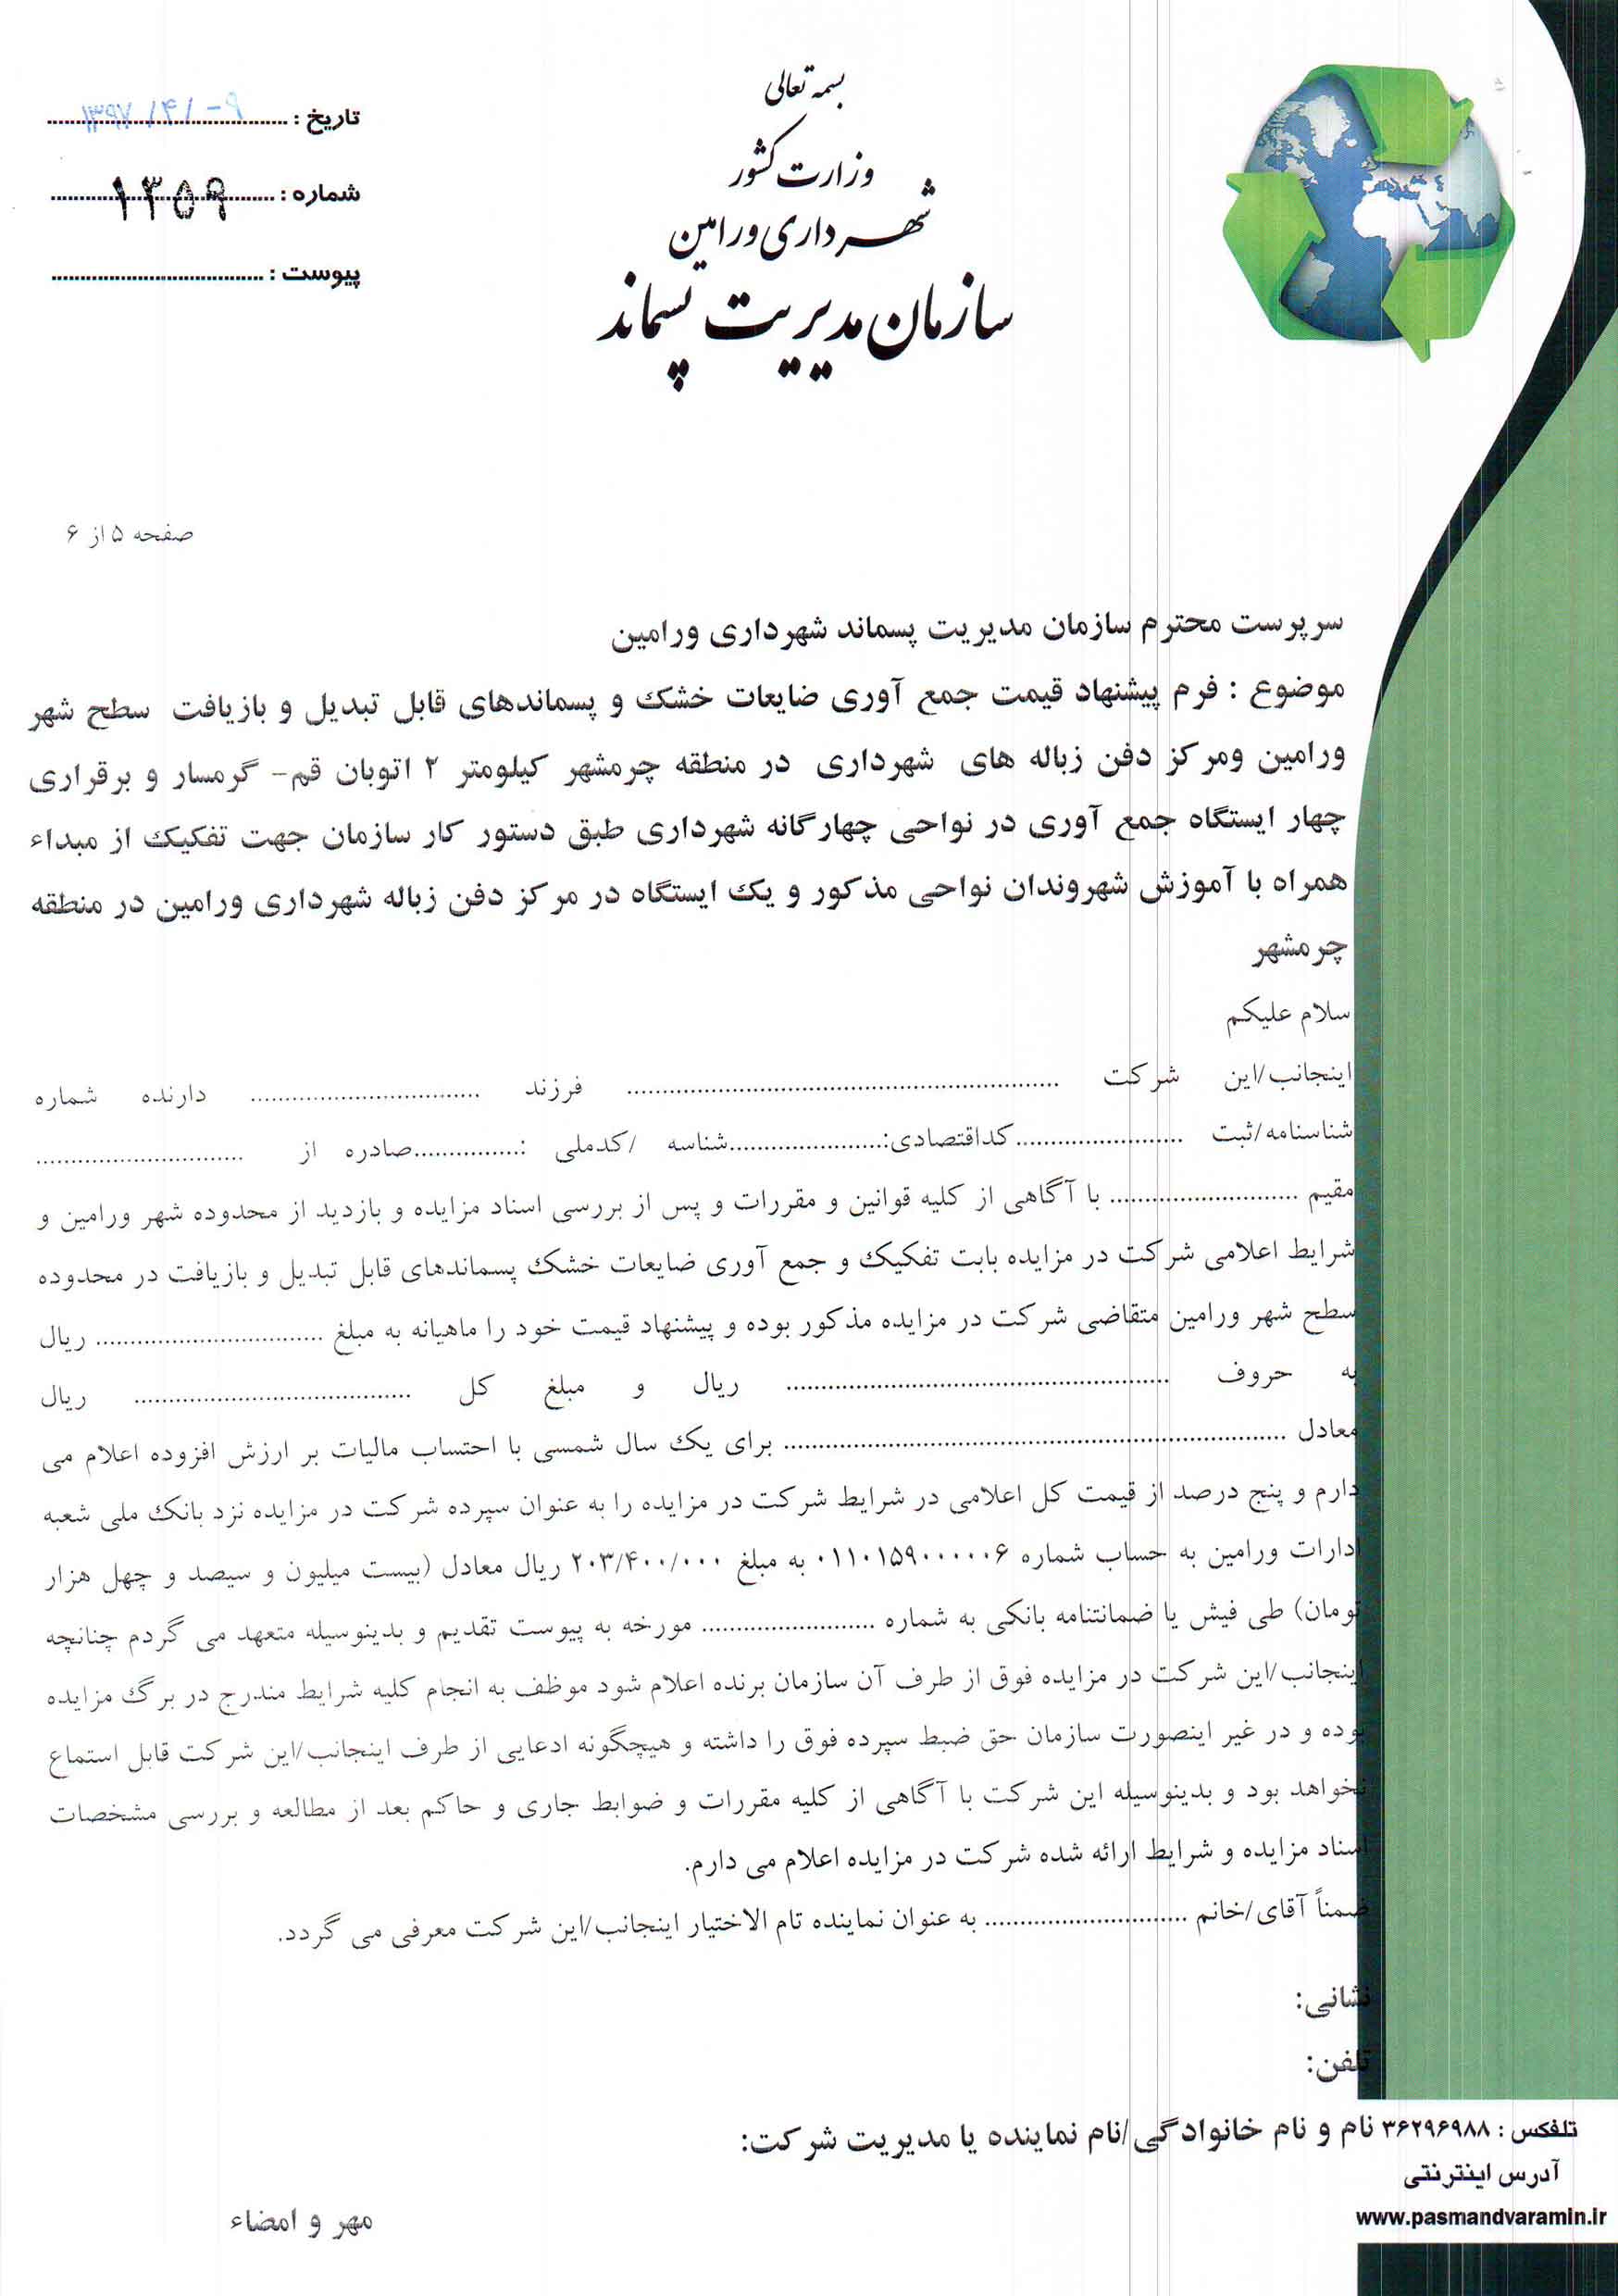 بسمه تعالی
وزارت کشور
شهرداری ورامین
سازمان مدیریت پسماند
تاریخ :
شماره : ۱۳۵۹
پیوست :
صفحه ۵ از ۶
سرپرست محترم سازمان مدیریت پسماند شهرداری ورامین
موضوع : فرم پیشنهاد قیمت جمع آوری ضایعات خشک و پسماندهای قابل تبدیل و بازیافت سطح شهر
ورامین ومرکز دفن زباله های شهرداری در منطقه چرمشهر کیلومتر ۲ اتوبان قم- گرمسار و برقراری
چهار ایستگاه جمع آوری در نواحی چهارگانه شهرداری طبق دستور کار سازمان جهت تفکیک از مبداء
همراه با آموزش شهروندان نواحی مذکور و یک ایستگاه در مرکز دفن زباله شهرداری ورامین در منطقه
چرمشهر
سلام علیکم
اینجانب/این شرکت .................... فرزند .................... دارنده شماره
شناسنامه/ثبت ....................کداقتصادی:....................شناسه /کدملی :...............صادره از ....................
مقیم .................... با آگاهی از کلیه قوانین و مقررات و پس از بررسی اسناد مزایده و بازدید از محدوده شهر ورامین و
شرایط اعلامی شرکت در مزایده بابت تفکیک و جمع آوری ضایعات خشک پسماندهای قابل تبدیل و بازیافت در محدوده
سطح شهر ورامین متقاضی شرکت در مزایده مذکور بوده و پیشنهاد قیمت خود را ماهیانه به مبلغ .................... ریال
به حروف .................... ریال و مبلغ کل .................... ریال
معادل .................... برای یک سال شمسی با احتساب مالیات بر ارزش افزوده اعلام می
دارم و پنج درصد از قیمت کل اعلامی در شرایط شرکت در مزایده را به عنوان سپرده شرکت در مزایده نزد بانک ملی شعبه
ادارات ورامین به حساب شماره ۰۱۱۰۱۵۹۰۰۰۰۰۶ به مبلغ ۲۰۳/۴۰۰/۰۰۰ ریال معادل (بیست میلیون و سیصد و چهل هزار
تومان) طی فیش یا ضمانتنامه بانکی به شماره .................... مورخه به پیوست تقدیم و بدینوسیله متعهد می گردم چنانچه
اینجانب/این شرکت در مزایده فوق از طرف آن سازمان برنده اعلام شود موظف به انجام کلیه شرایط مندرج در برگ مزایده
بوده و در غیر اینصورت سازمان حق ضبط سپرده فوق را داشته و هیچگونه ادعایی از طرف اینجانب/این شرکت قابل استماع
نخواهد بود و بدینوسیله این شرکت با آگاهی از کلیه مقررات و ضوابط جاری و حاکم بعد از مطالعه و بررسی مشخصات
اسناد مزایده و شرایط ارائه شده شرکت در مزایده اعلام می دارم.
ضمناً آقای/خانم .................... به عنوان نماینده تام الاختیار اینجانب/این شرکت معرفی می گردد.
نشانی:
تلفن:
نام و نام خانوادگی/نام نماینده یا مدیریت شرکت:
مهر و امضاء
تلفکس : ۳۶۲۹۶۹۸۸
آدرس اینترنتی
www.pasmandvaramin.ir